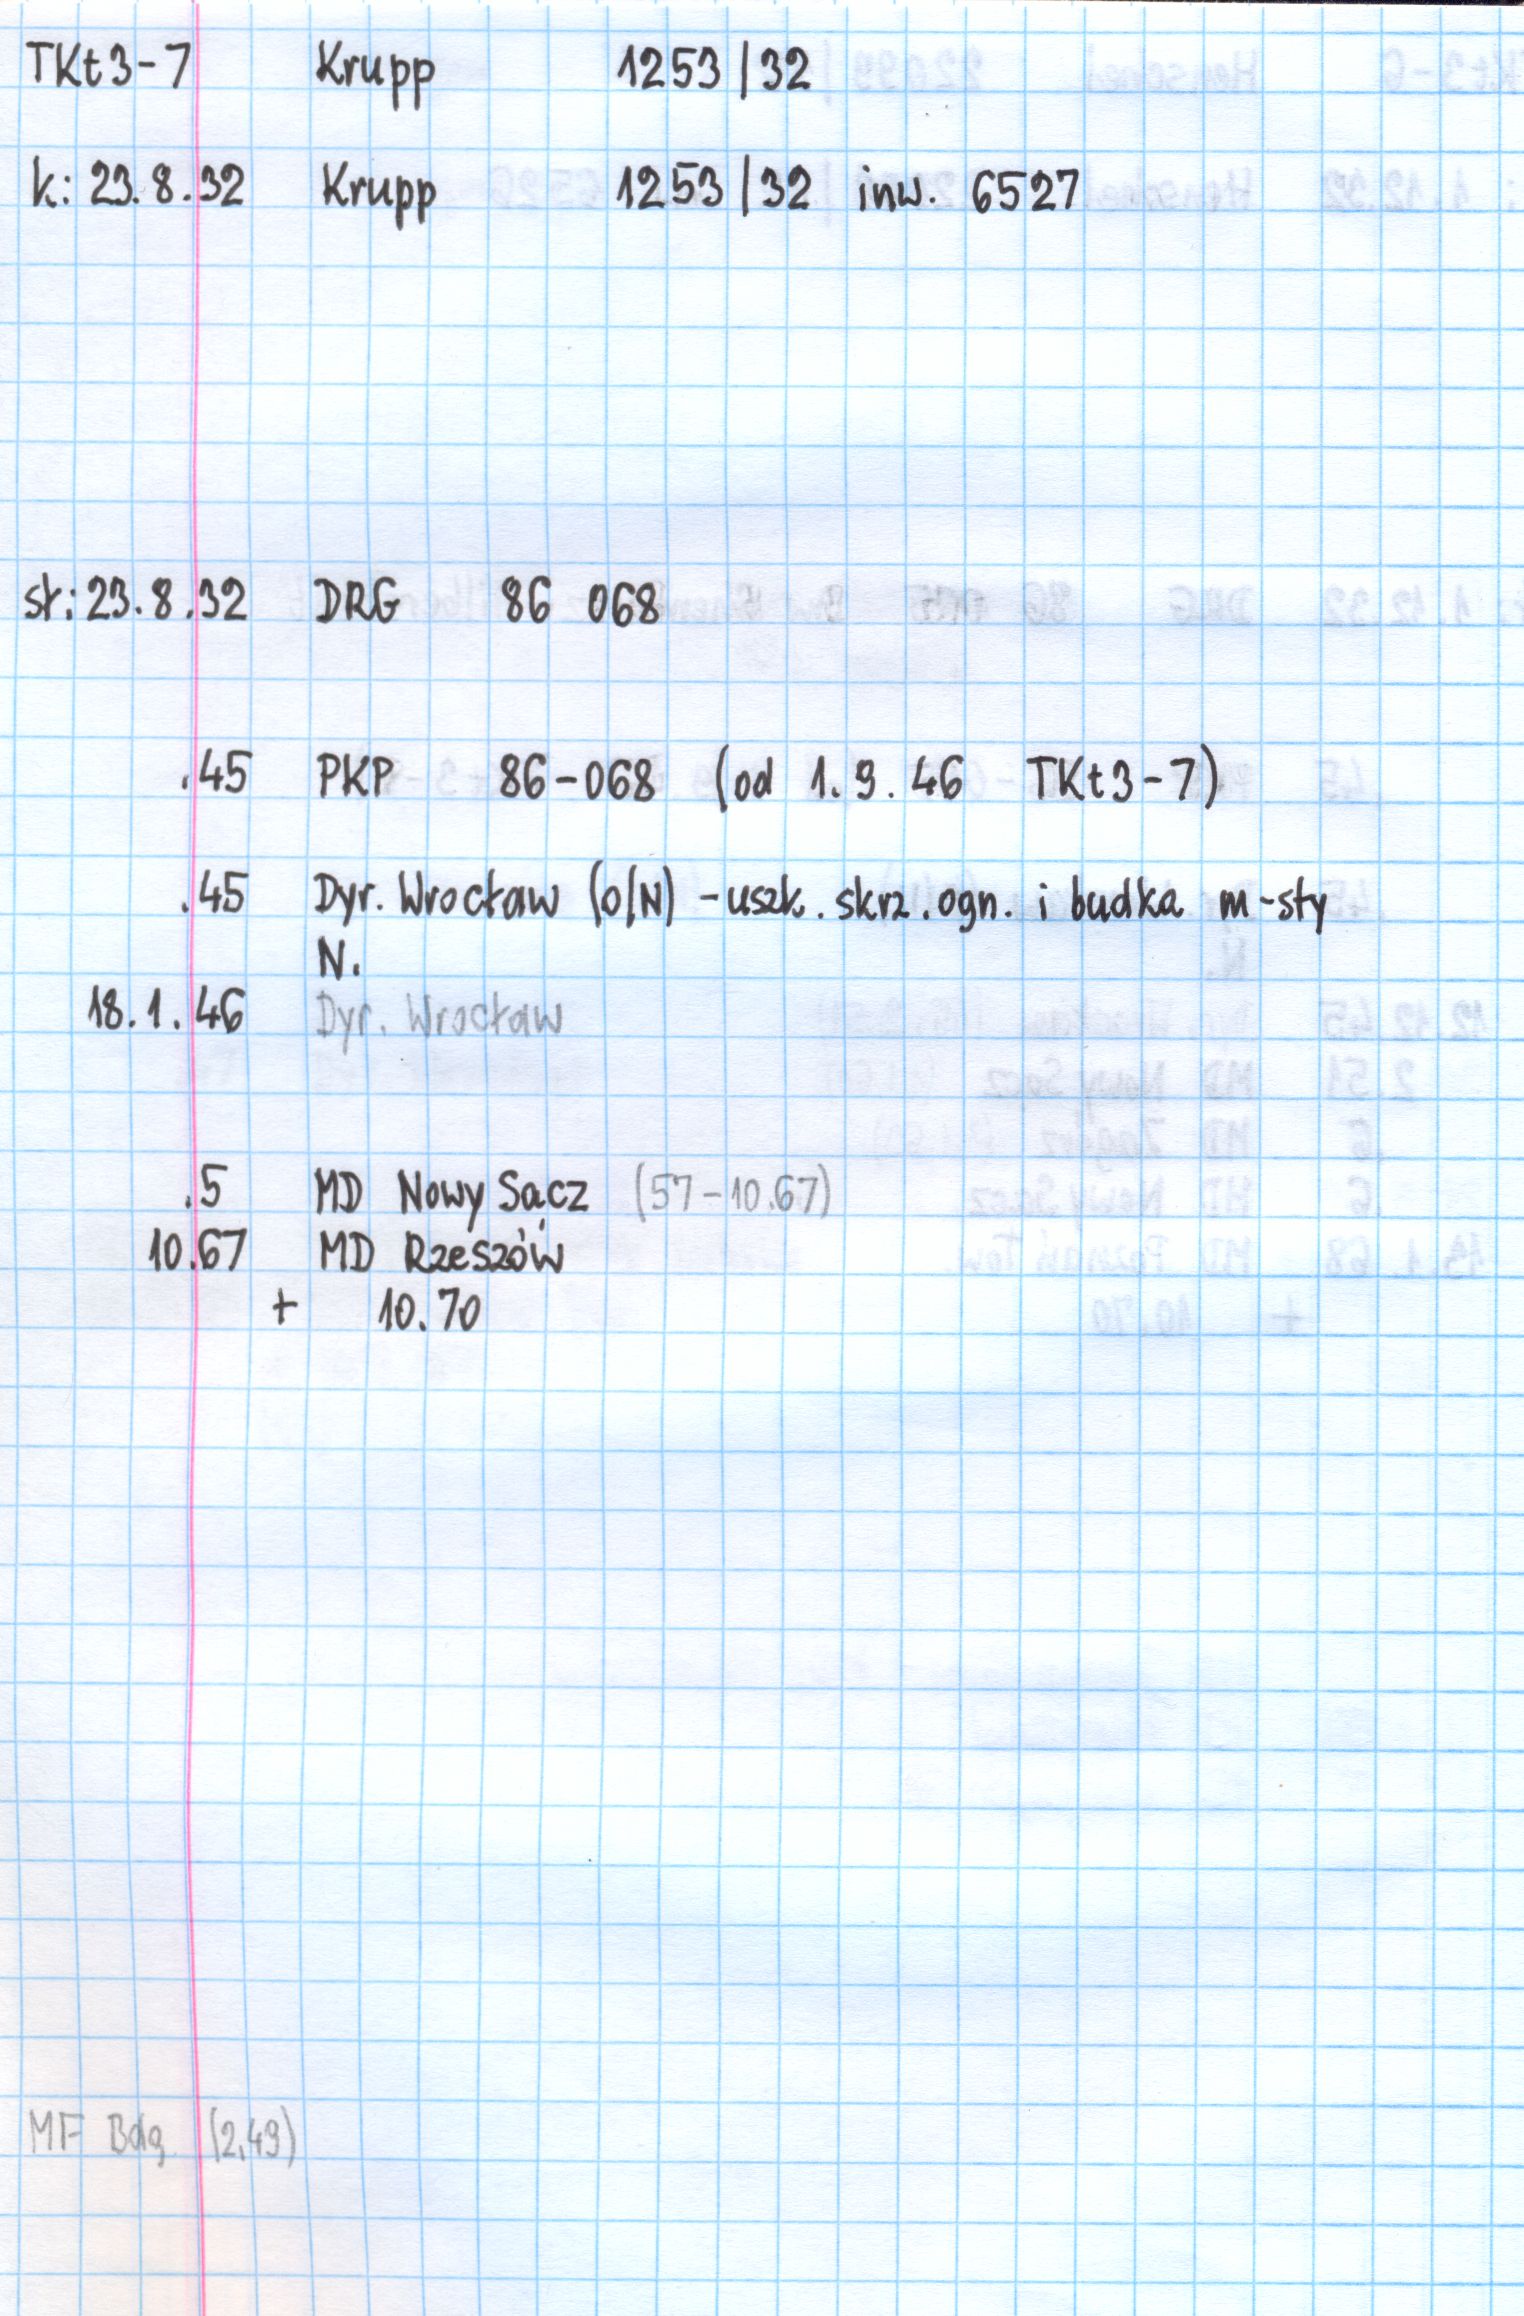 TKt3-7 Krupp 1253/32
k: 23.8.32 Krupp 1253/32 inw. 6527
st: 23.8.32 DRG 86 068
.45 PKP 86-068 (od 1.9.46 TKt3-7)
.45 Dyr. Wrocław (o/N) - uszk. skrz. ogn. i budka m-sty
N.
18.1.46 Dyr. Wrocław
.5 MD Nowy Sącz (57-10.67)
10.67 MD Rzeszów
+ 10.70
MF Bdg (2.49)